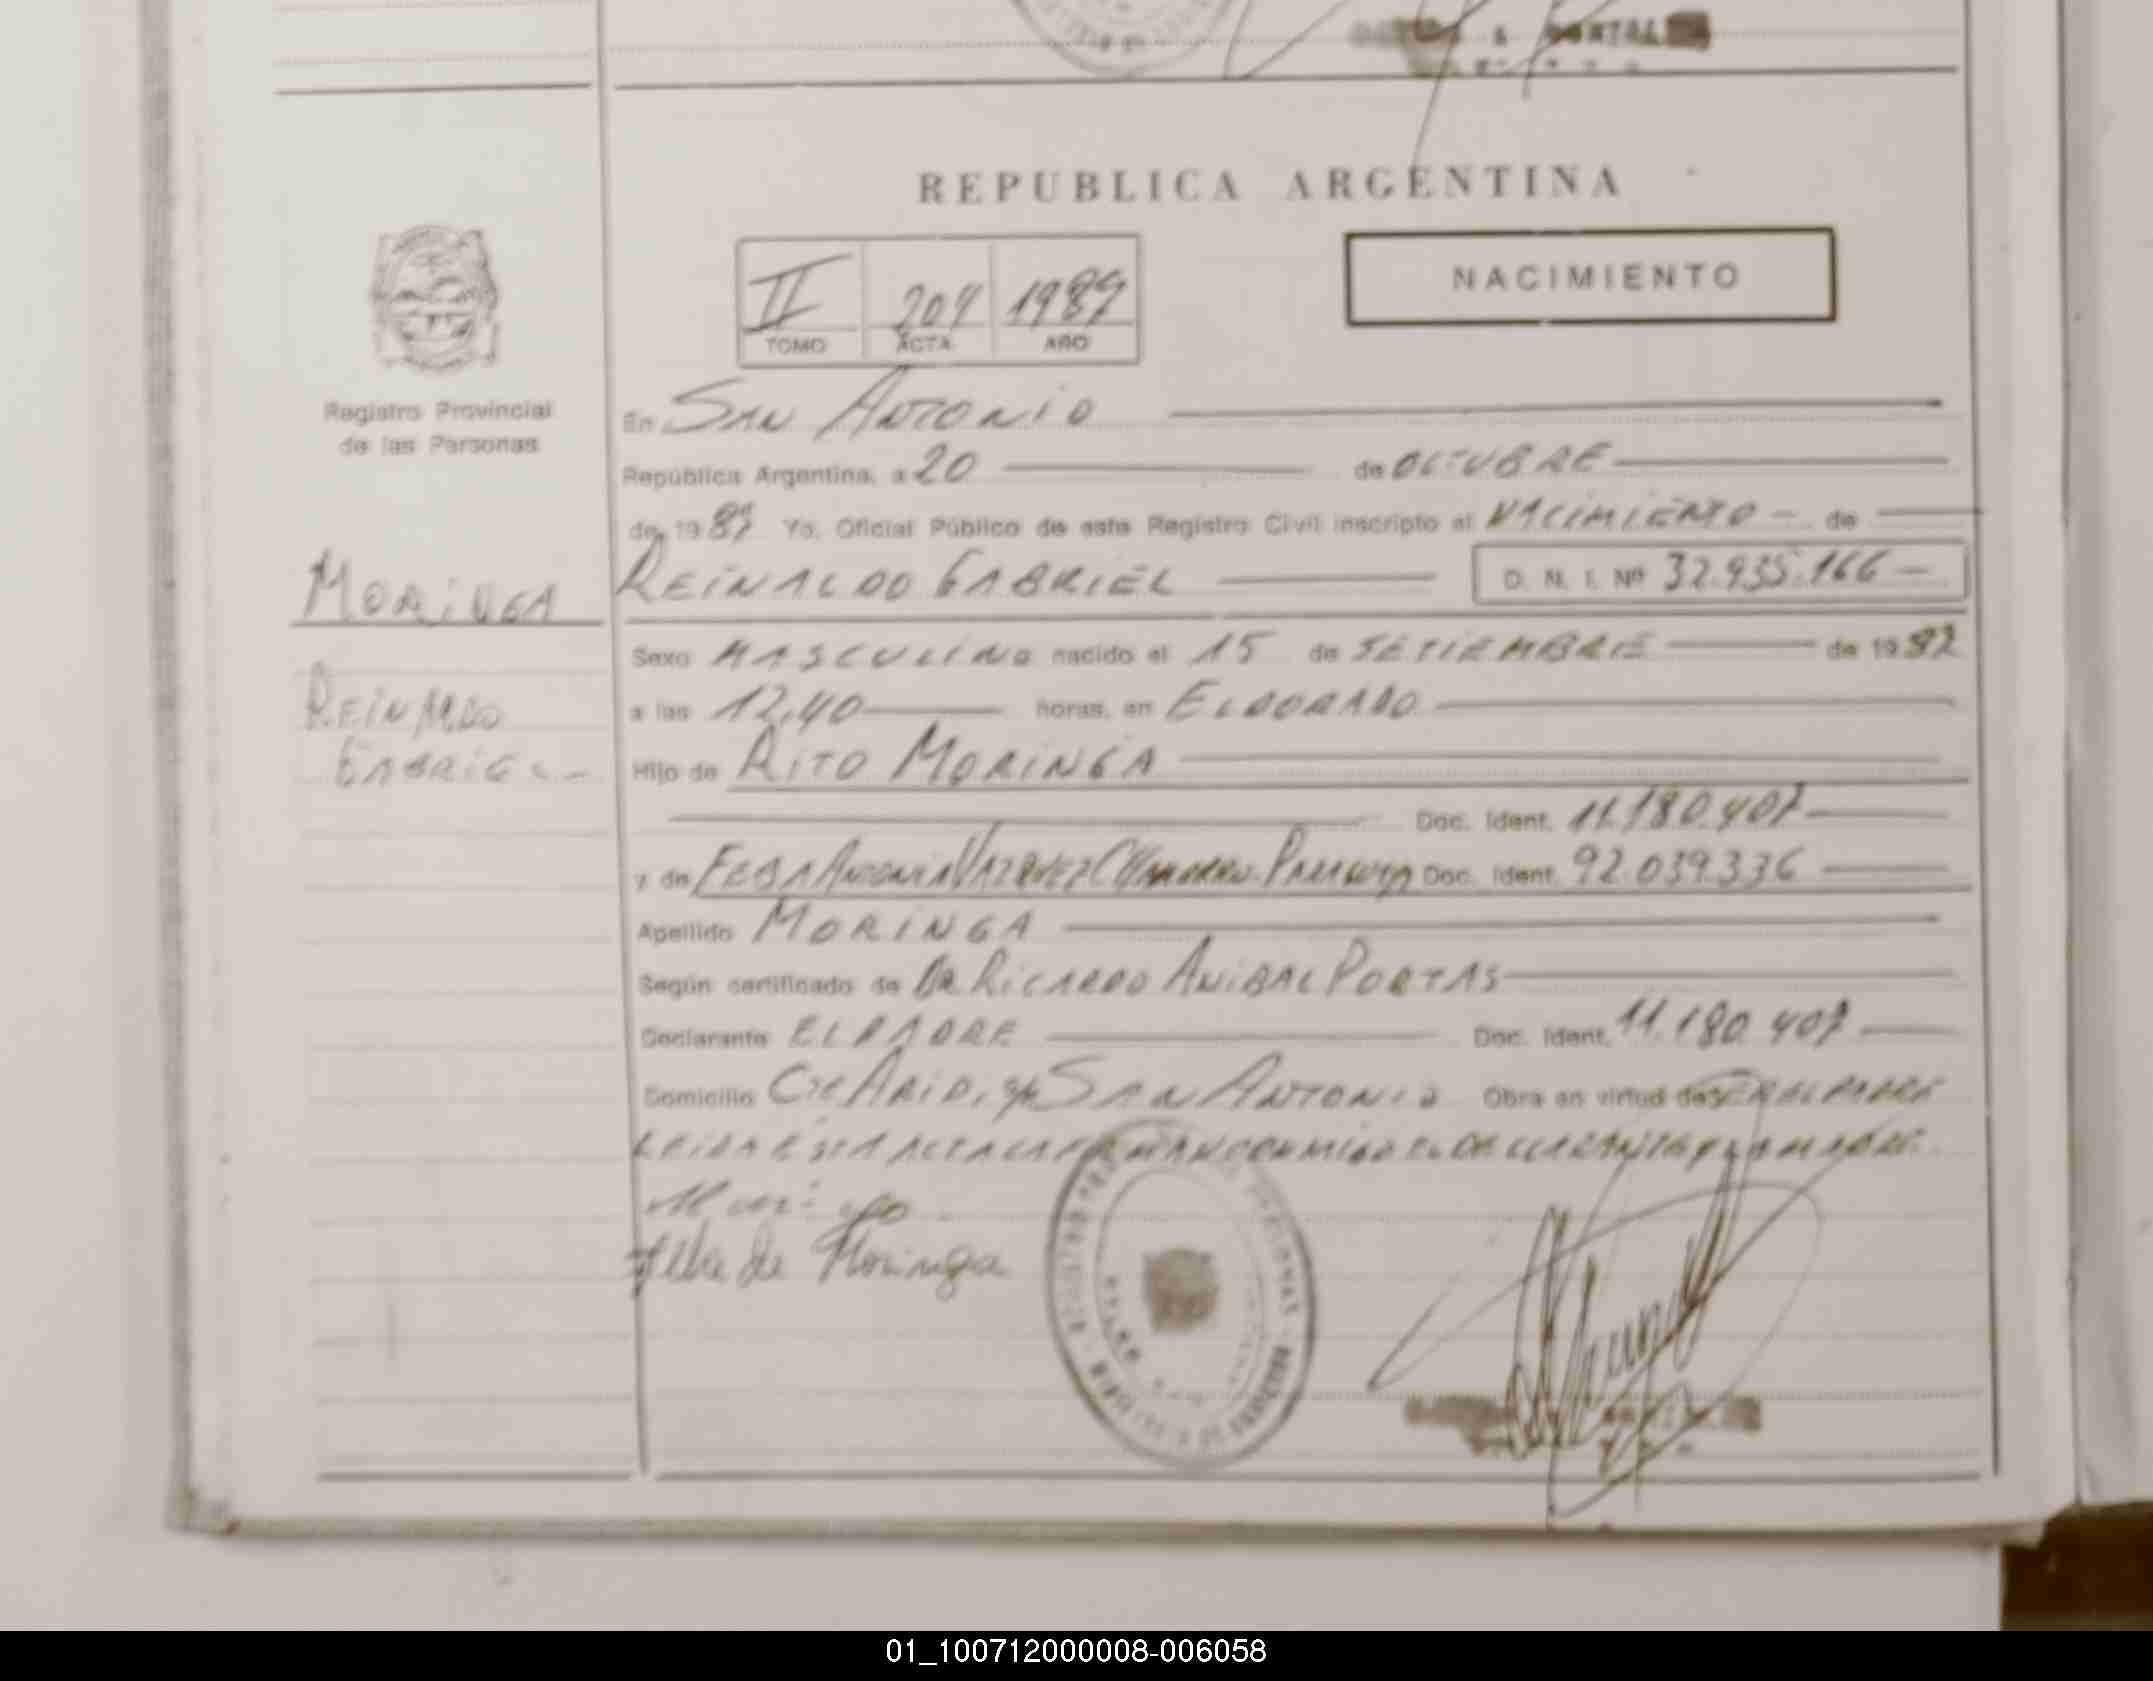 REPUBLICA ARGENTINA
II 1989
TOMO ACTA AÑO
NACIMIENTO
Registro Provincial
de las Personas
En SAN ANTONIO
República Argentina, a 20 de OCTUBRE
de 19 Yo, Oficial Público de este Registro Civil inscripto el NACIMIENTO - de
MORINGA
REINALDO GABRIEL D. N. I. Nº 32.935.166 -
REINALDO
GABRIEL -
Sexo MASCULINO nacido el 15 de SETIEMBRE de 19
a las 12,40 horas, en ELDORADO
Hijo de RITO MORINGA
Doc. Ident. 11.180.407
y de ANTONIA VAZQUEZ Doc. Ident. 92.039.336
Apellido MORINGA
Según certificado de DR. RICARDO ANIBAL PORTAS
Declarante EL PADRE Doc. Ident. 11.180.407
Domicilio SAN ANTONIO Obra en virtud de SER EL PADRE
LEIDA ESTA ACTA LA FIRMAN CONMIGO EL DECLARANTE Y LA MADRE.
de Moringa
01_100712000008-006058